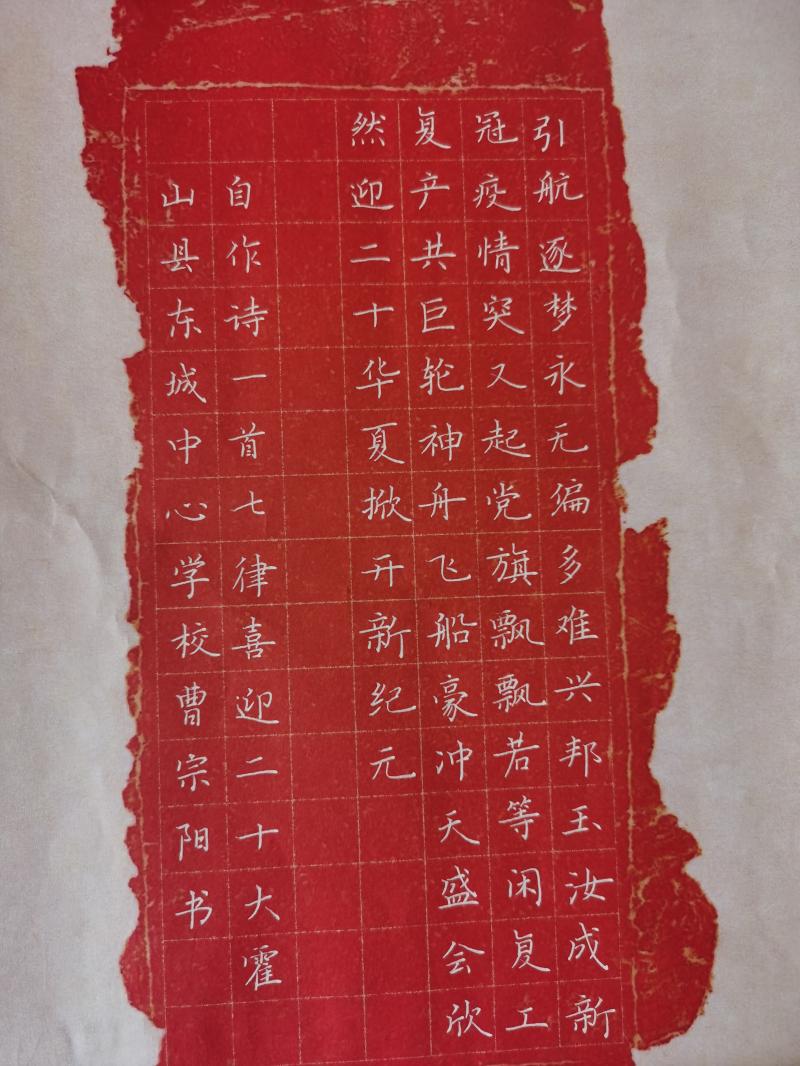 引航逐梦永无偏多难兴邦玉汝成新
冠疫情突又起党旗飘飘若等闲复工
复产共巨轮神舟飞船豪冲天盛会欣
然迎二十华夏掀开新纪元
自作诗一首七律喜迎二十大霍
山县东城中心学校曹宗阳书